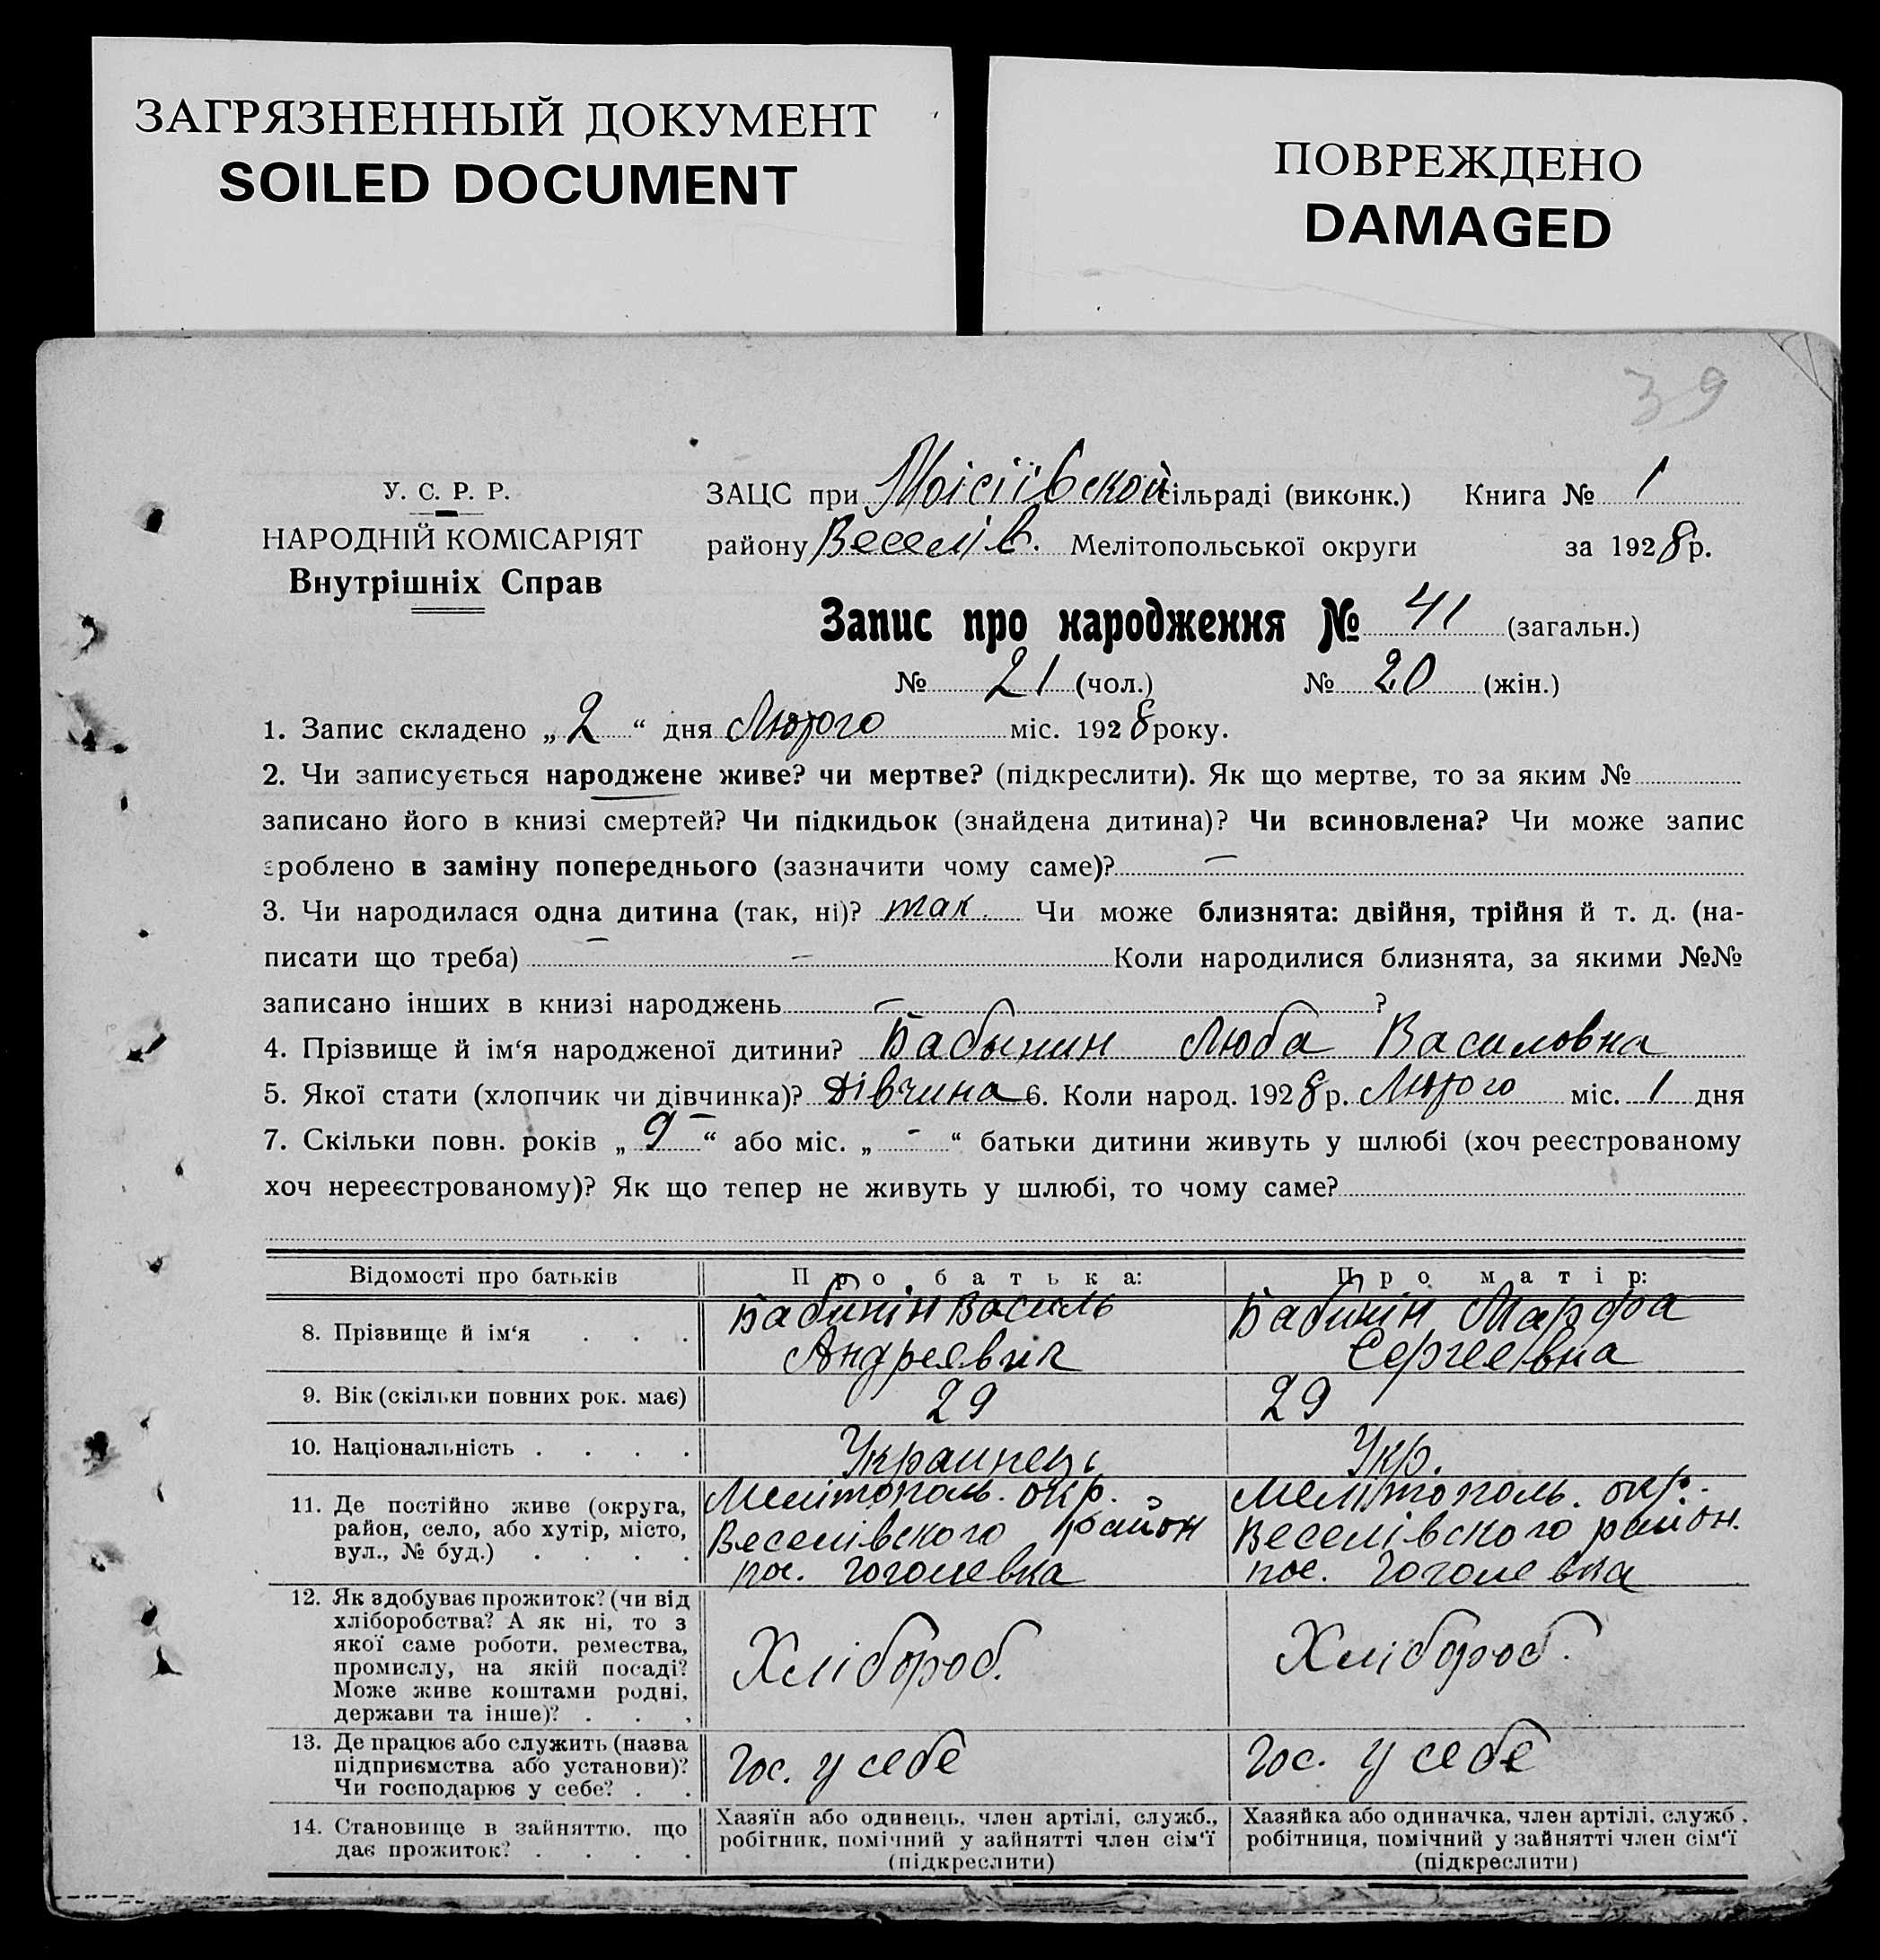 ЗАГРЯЗНЕННЫЙ ДОКУМЕНТ
SOILED DOCUMENT
ПОВРЕЖДЕНО
DAMAGED
39
У. С. Р. Р.
НАРОДНІЙ КОМІСАРІЯТ
Внутрішніх Справ
ЗАЦС при Моісіївской сільраді (виконк.) Книга № 1
району Веселів. Мелітопольської округи за 1928 р.
Запис про народження № 41 (загальн.)
№ 21 (чол.) № 20 (жін.)
1. Запис складено „ 2 “ дня Лютого міс. 1928 року.
2. Чи записується народжене живе? чи мертве? (підкреслити). Як що мертве, то за яким №
записано його в книзі смертей? Чи підкидьок (знайдена дитина)? Чи всиновлена? Чи може запис
зроблено в заміну попереднього (зазначити чому саме)? —
3. Чи народилася одна дитина (так, ні)? так. Чи може близнята: двійня, трійня й т. д. (на-
писати що треба) — — Коли народилися близнята, за якими №№
записано інших в книзі народжень — ?
4. Прізвище й ім‘я народженої дитини? Бабынин Люба Василовна
5. Якої стати (хлопчик чи дівчинка)? Дівчина 6. Коли народ. 1928 р. Лютого міс. 1 дня
7. Скільки повн. років „ 9 — “ або міс. „ - “ батьки дитини живуть у шлюбі (хоч реєстрованому
хоч нереєстрованому)? Як що тепер не живуть у шлюбі, то чому саме?
Відомості про батьків Про батька: Про матір:
8. Прізвище й ім‘я . . . Бабинін Василь Бабинін Марфа
Андреевич Сергеевна
9. Вік (скільки повних рок. має) 29 29
10. Національність . . . . Украинець Укр.
11. Де постійно живе (округа, Мелітополь. окр. Мелітополь. окр.
район, село, або хутір, місто, Веселівского район Веселівского район.
вул., № буд.) . . . . пос. Гоголевка пос. Гоголевка
12. Як здобуває прожиток? (чи від
хліборобства? А як ні, то з
якої саме роботи, ремества, Хлібороб. Хлібороб.
промислу, на якій посаді?
Може живе коштами родні,
держави та інше)? . . .
13. Де працює або служить (назва
підприємства або установи)? Гос. у себе Гос. у себе
Чи господарює у себе? . .
14. Становище в зайняттю, що
дає прожиток? . . . .
Хазяїн або одинець, член артілі, служб.,
робітник, помічний у зайнятті член сім‘ї
(підкреслити)
Хазяйка або одиначка, член артілі, служб.,
робітниця, помічний у зайнятті член сім‘ї
(підкреслити)